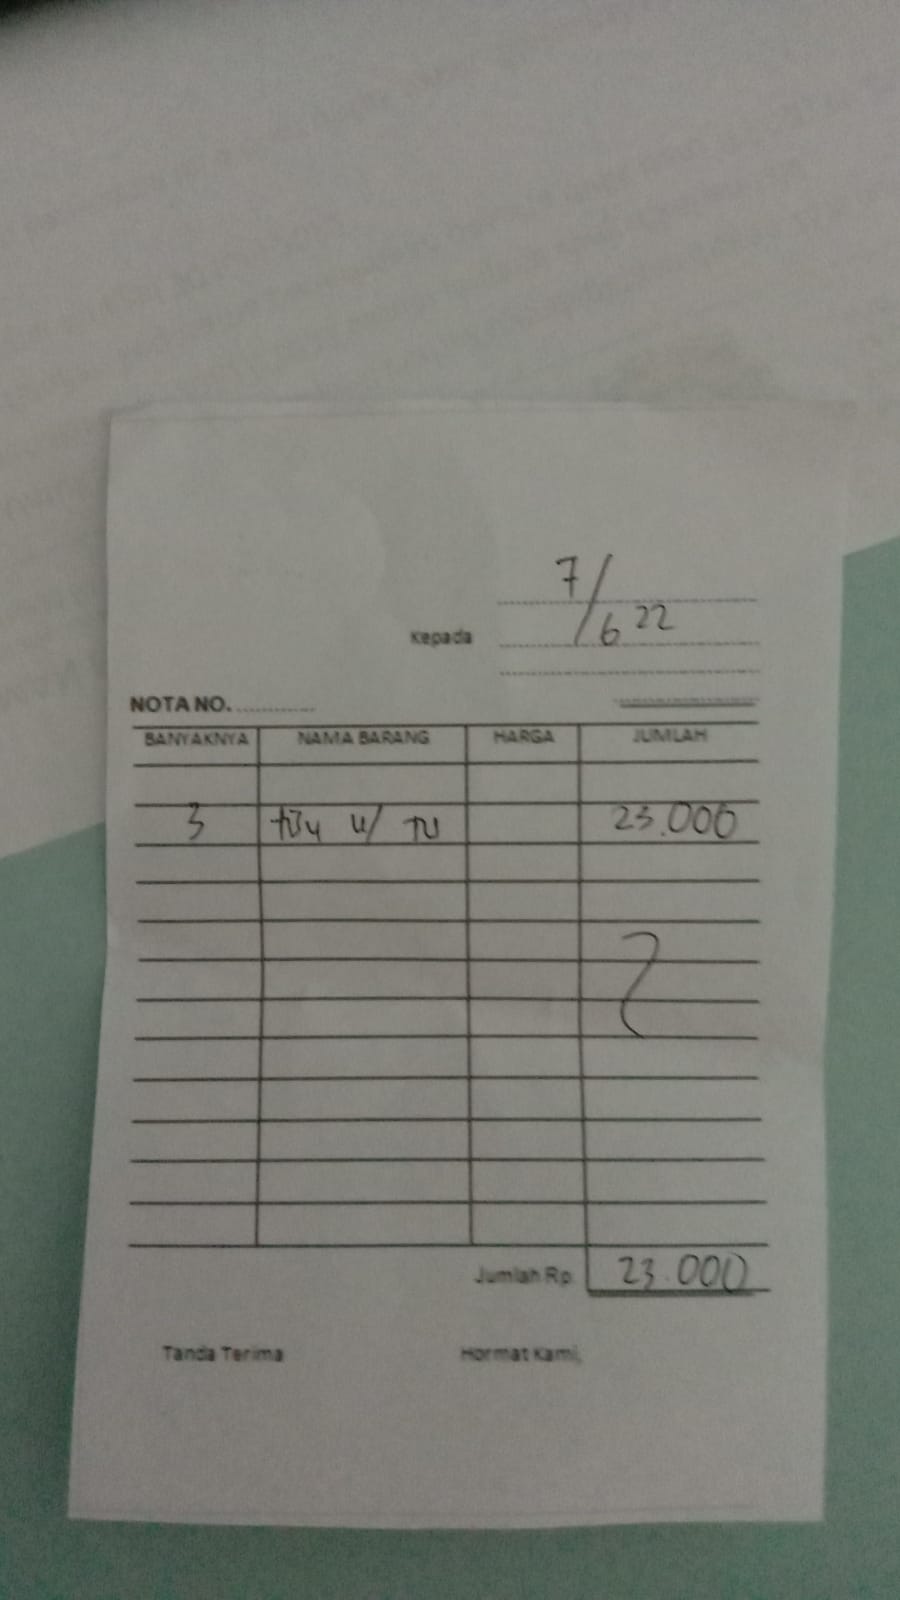 7/6 22
Kepada
NOTA NO. .............
BANYAKNYA NAMA BARANG HARGA JUMLAH
3 u/ TU 23.000
Jumlah Rp. 23.000
Tanda Terima Hormat Kami,